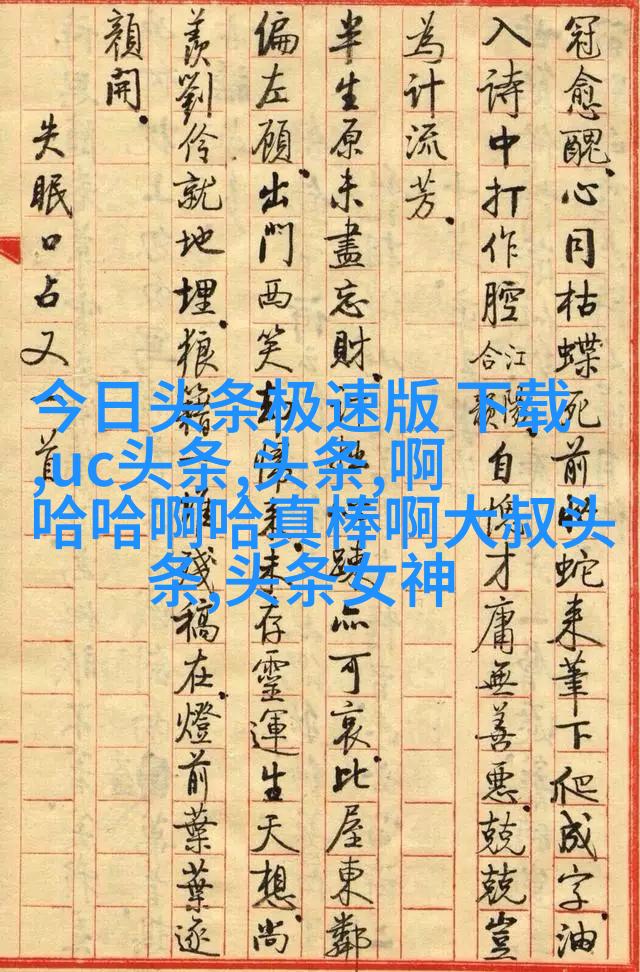 冠愈醜。心同枯蝶死前蛇来筆下爬成字。油
入詩中打作腔合江陽韻自愧才庸無善惡。兢兢豈
為計流芳。
半生原未盡忘財。計踈亦可哀。比屋東鄰
偏左顧。出門西笑却懷来。未存靈運生天想。尚
羨劉伶就地埋。狼籍一堆殘稿在。燈前葉葉逐
顏開。
失眠口占又一首
今日头条极速版 下载
,uc头条,头条,啊
哈哈啊哈真棒啊大叔头
条,头条女神